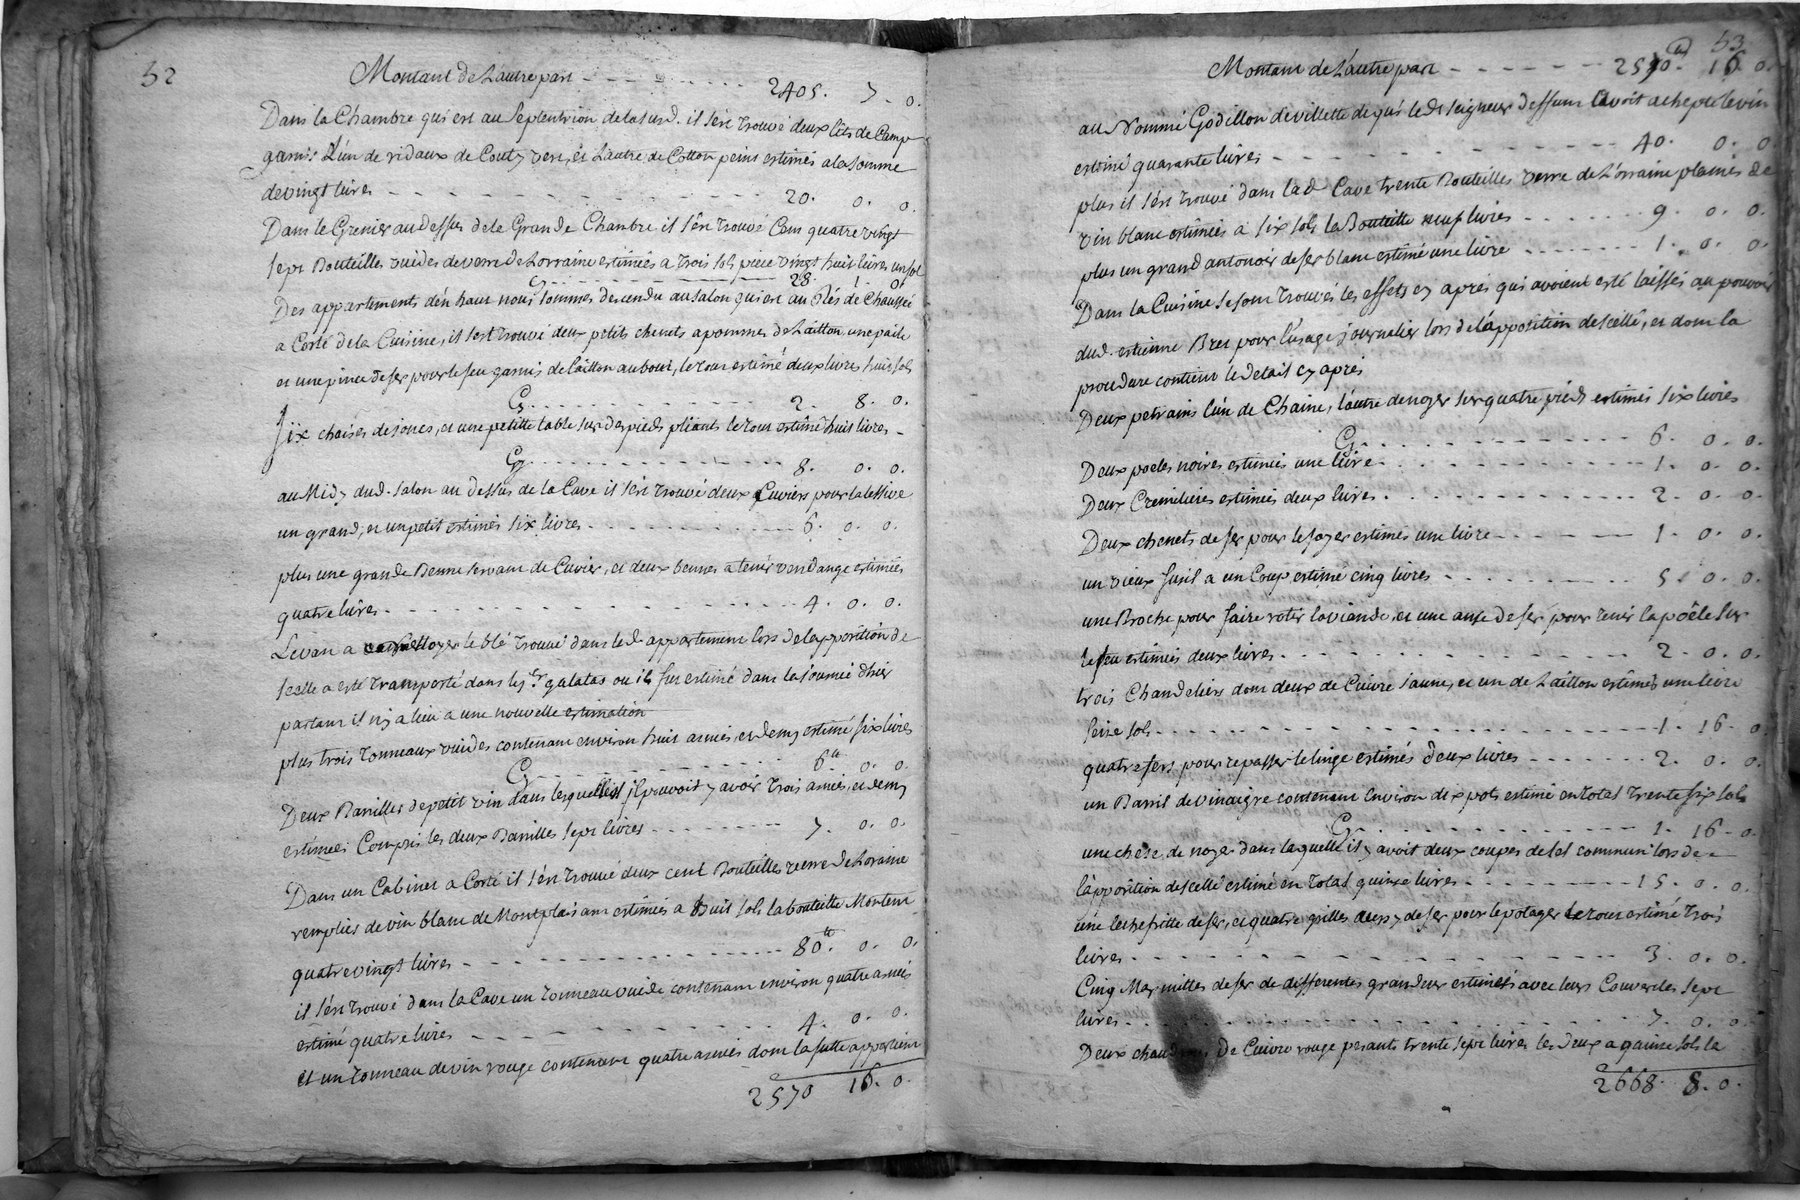 52
Montant de L'autre part - - - - - - 2405. 7. 0.
Dans la Chambre qui est au Septentrion de lasusd. il s'est trouvé deux lits de Camp
garnis L'un de ridaux de Couty vert, et L'autre de Cotton peins estimés a la somme
de vingt livres - - - - - - 20. 0. 0.
Dans le Grenier au dessus dela Grande Chambre il s'en trouvé Cens quatre vingt
sept Bouteilles vuides deverre de Lorraine estimées a trois sols piece vingt huit livres un sol
Cy - - - - - - 28. 1. 0.
Des appartements d'en haut nous sommes descendu au salon qui est au Rés de Chaussée
a Corté de la Cuisine, il s'est trouvé deux petits chenets a pommes de Laitton, une paile
et une pince de fer pour le feu garnis de laitton au bout, le tout estimé deux livres huit sols
Cy - - - - - - 2. 8. 0.
Six chaises de joncs, et une petitte table sur des pieds pliants le tout estimé huit livres -
Cy - - - - - - 8. 0. 0.
au Midy dud. salon au dessus de la Cave il s'est trouvé deux Cuviers pour la lessive
un grand, et un petit estimés six livres - - - - - - 6. 0. 0.
plus une grande Benne servant de Cuvier, et deux bennes a tenir vendange estimées
quatre livres - - - - - - 4. 0. 0.
Levan a nettoyer le blé trouvé dans led. appartement lors de l'apposition de
scellé a esté transporté dans les galatas ou il fut estimé dans la journée d'hier
partant il n'y a lieu a une nouvelle estimation
plus trois tonneaux vuides contenant environ huit asnées, et demy estimé six livres
Cy - - - - - - 6tt. 0. 0.
Deux Barilles de petit vin dans lesquelles il pouvoit y avoir trois asnées, et demy
estimées Compris les deux Barilles sept livres - - - - - - 7. 0. 0.
Dans un Cabinet a Corté il s'est trouvé deux cent Bouteilles verre de Loraine
remplies de vin blanc de Montplaisant estimées a huit sols la bouteille Montent
quatre vingt livres - - - - - - 80tt. 0. 0.
il s'est trouvé dans la Cave un tonneau vuide contenant environ quatre asnées
estimé quatre livres - - - - - - 4. 0. 0.
et un tonneau de vin rouge contenant quatre asnées dont la futte appartient
2570 16. 0.
53
Montant de L'autre part - - - - - 2570. 16. 0.
au Nommé Godillon de villette de qui led. seigneur deffunt avoit achepté le vin
estimé quarante livres - - - - - - 40. 0. 0.
plus il s'est trouvé dans lad. Cave trente Bouteilles verre de Lorraine plaines de
vin blanc estimées a six sols la Bouteille neuf livres - - - - - - 9. 0. 0.
plus un grand antonoir de fer blanc estimé une livre - - - - - - 1. 0. 0.
Dans la Cuisine se sont trouvés les effets cy apres qui avoient esté laissés au pouvoir
dud. estienne Bret pour l'usage journalier lors de l'apposition de scellé, et dont la
procedure contient le detail cy apres
Deux petrains l'un de Chaine, l'autre de noyer sur quatre pieds estimés six livres
Cy - - - - - - 6. 0. 0.
Deux poeles noires estimées une livre - - - - - - 1. 0. 0.
Deux Cremilieres estimées deux livres - - - - - - 2. 0. 0.
Deux chenets de fer pour le foyer estimés une livre - - - - - - 1. 0. 0.
un vieux fusil a un Coup estimé cinq livres - - - - - - 5. 0. 0.
une Broche pour faire rotir la viande, et une anse de fer pour tenir la poêle sur
le feu estimées deux livres - - - - - - 2. 0. 0.
trois Chandeliers dont deux de Cuivre jaune, et un de Laitton estimés une livre
seise sols - - - - - - 1. 16. 0.
quatre fers pour repasser le linge estimés deux livres - - - - - - 2. 0. 0.
un Barril de vinaigre contenant environ dix pots estimé en total trente six sols
Cy - - - - - - 1. 16. 0.
une chese de noyer dans laquelle il y avoit deux coupes de sel commun lors de
l'apposition de scellé estimé en total quinze livres - - - - - - 15. 0. 0.
une lechefritte de fer, et quatre grilles aussy de fer pour le potager le tout estimé trois
livres - - - - - - 3. 0. 0.
Cinq Marmittes de fer de differentes grandeur estimés avec leurs Couvercles sept
livres - - - - - - 7. 0. 0.
Deux chaudrons de Cuivre rouge pesants trente sept livres les deux a quinze sols la
2668. 8. 0.